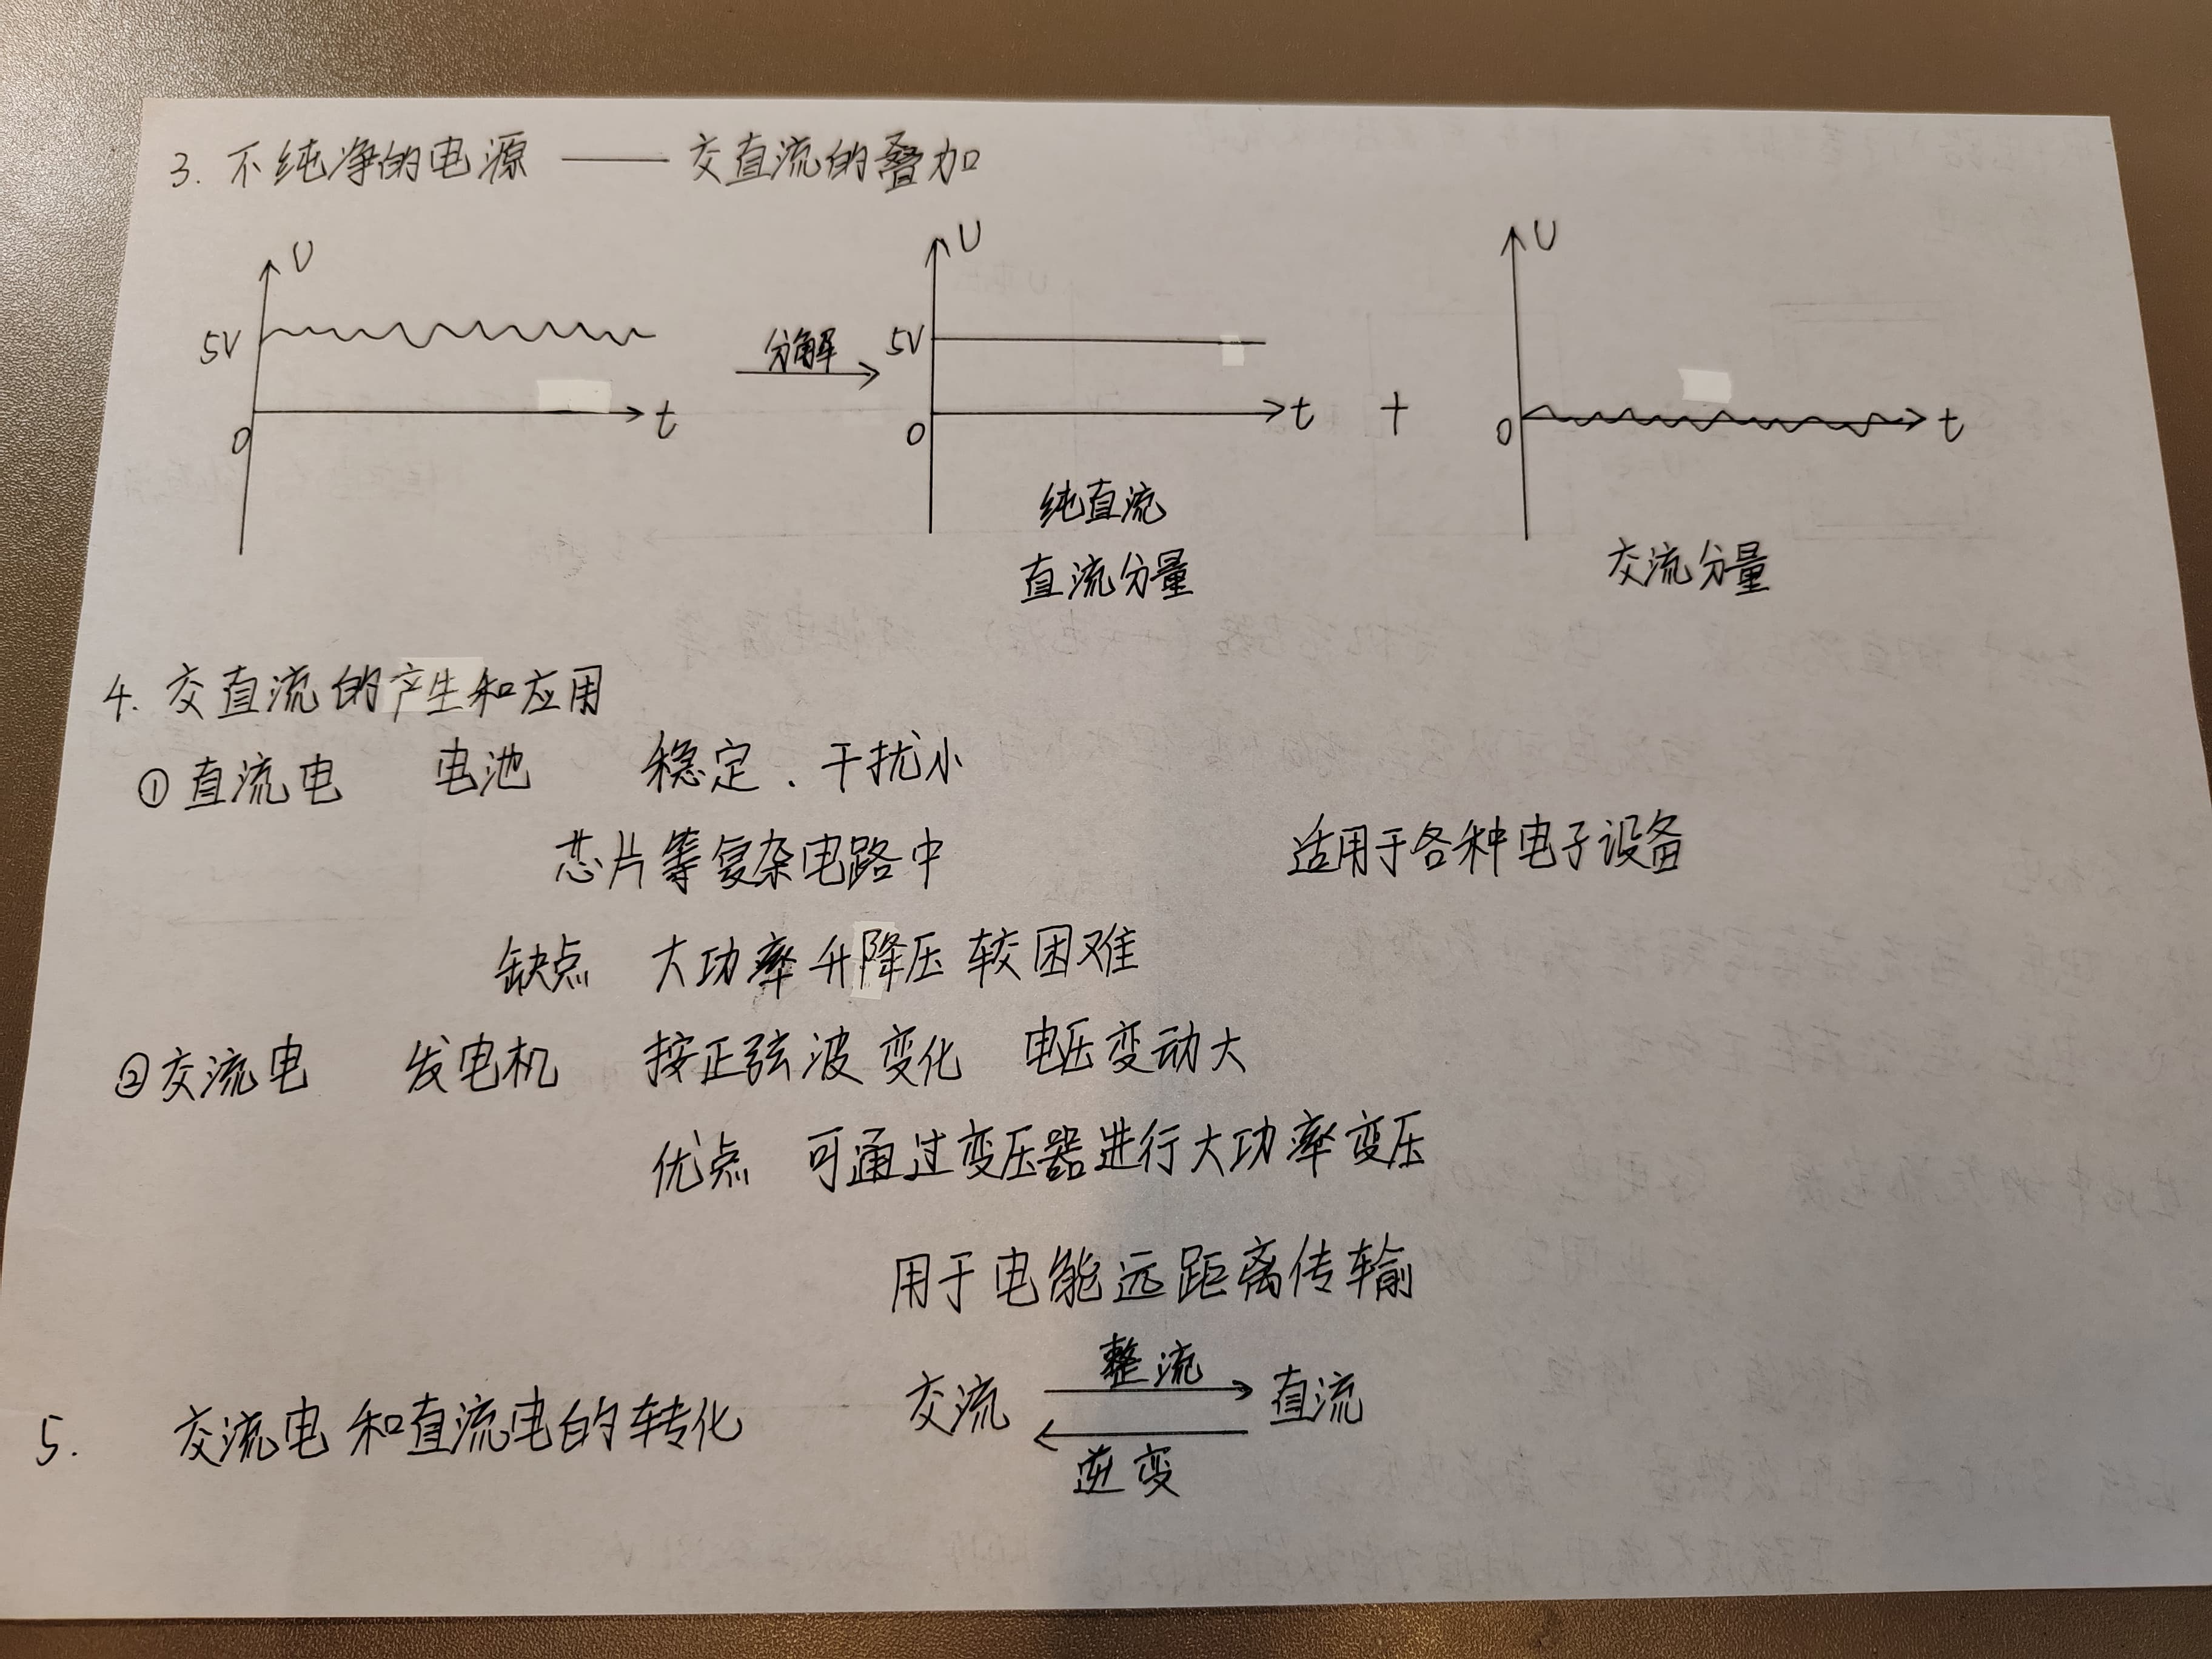 3. 不纯净的电源 —— 交直流的叠加
U
5V
0
t
分解
U
5V
0
t
+
U
0
t
纯直流
直流分量
交流分量
4. 交直流的产生和应用
①直流电 电池 稳定、干扰小
芯片等复杂电路中 适用于各种电子设备
缺点 大功率升降压较困难
②交流电 发电机 按正弦波变化 电压变动大
优点 可通过变压器进行大功率变压
用于电能远距离传输
5. 交流电和直流电的转化 交流 整流 直流
逆变